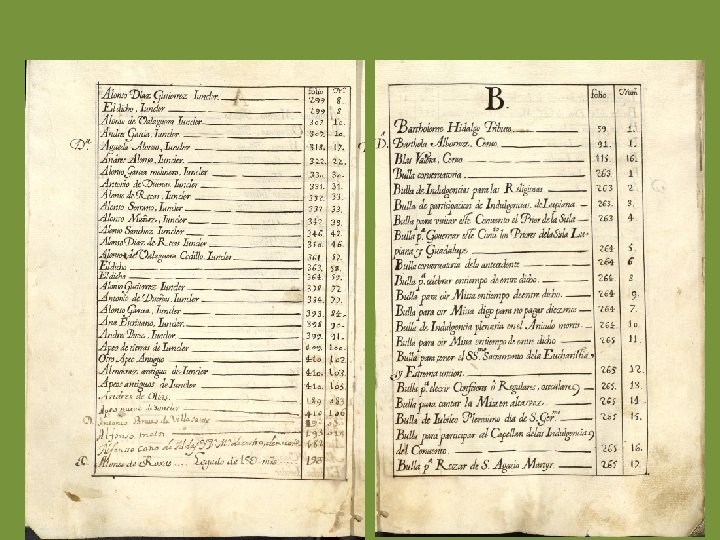 folio Nº
Alonso Diaz Gutierrez Iuncler 299 8.
El dicho, Iuncler 299 8
Alonso de Valaguera Iuncler 307 10.
Andres Garcia, Iuncler 307. 10.
Dª Agueda Alonso, Iuncler 318. 17.
Andres Alonso, Iuncler. 322. 22.
Alonso Garcia molinero, Iuncler 330. 30.
Antonio de Duenas, Iuncler 331. 31.
Alonso de Recas, Iuncler 332 33.
Alonso Serrano, Iuncler 332. 33.
Alonso Muñoz, Iuncler 342 39.
Alonso Sanchez Iuncler 346. 42.
Alonso Diaz de Recas Iuncler 46.
Alonso de Valaguera Cedillo, Iuncler 361 52.
El dicho 363. 52.
El dicho 364. 52.
Alonso Gutierrez Iuncler 378 72.
Antonio de Dueñas, Iuncler 77.
Alonso Garcia, Iuncler 393. 84.
Ana Escriuano, Iuncler. 90.
Andres Perez, Iuncler 91.
Apeo de tierras de Iuncler 100.
Otro Apeo Antiguo 410 102.
Almoneda antigua de Iuncler 410. 103.
Apeos antiguos de Iuncler 410. 105.
Andres de 189
Apeo nuevo de Iuncler 410 106
Antonio de Villa
Alfonso
Alfonso Cano de
Alonso de Roxas Legado de 150 mis 198
B. folio Num
Bartholome Hidalgo Tributo 59. 1.
D. Barthola Albornoz, Censo 91. 1.
Blas Valera, Censo 115. 16.
Bulla conseruatoria 263 1
Bulla de Indulgencias para las Religiosas 263 2
Bulla de participacion de Indulgencias, de Lupiana 263. 3.
Bulla para visitar este Conuento el Prior de la Sisla 263 4.
Bulla pª Gouernar este Conto. los Priores de la Sisla Lu-
piana y Guadalupe 264 5.
Bulla conseruatoria de la antecedente 264 6
Bulla pª celebrar en tiempo de entre dicho 264. 8
Bulla para oir Missa en tiempo de entre dicho. 264. 9.
Bulla para oir Missa digo para no pagar diezmos 264 7.
Bulla de Indulgencia plenaria en el Articulo mortis 264. 10.
Bulla para oir Missa en tiempo de entre dicho 265 11.
Bulla para tener el SS. Sacramento de la Eucharistia,
y Extrema uncion. 265 12.
Bulla pª elexir Confesores ò Regulares, o seculares 265. 13.
Bulla para cantar la Missa en alta voz. 265 14.
Bulla de Iubileo Plenissimo dia de S. Germo. 265 15.
Bulla para participar el Capellan de las Indulgencias
del Conuento 265 16.
Bulla pª Rezar de S. Agacio Martyr. 265 17.